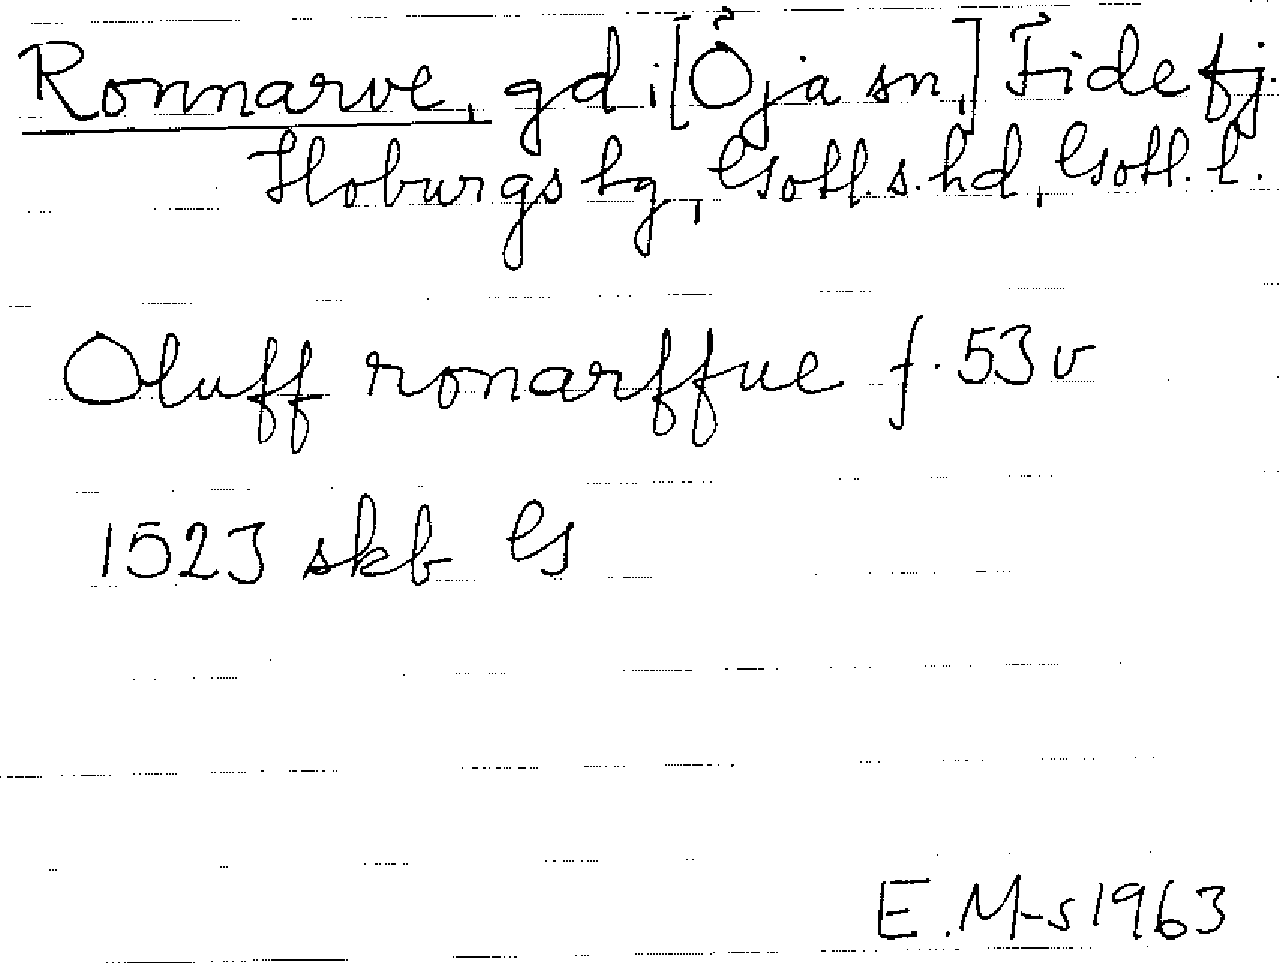 Ronnarve, gd i [Öja sn,] Fide fj.
Hoburgs tg, Gotl. s. hd, Gotl. l.
Oluff ronarffue f. 53 v
1523 skb G
E. M-s 1963